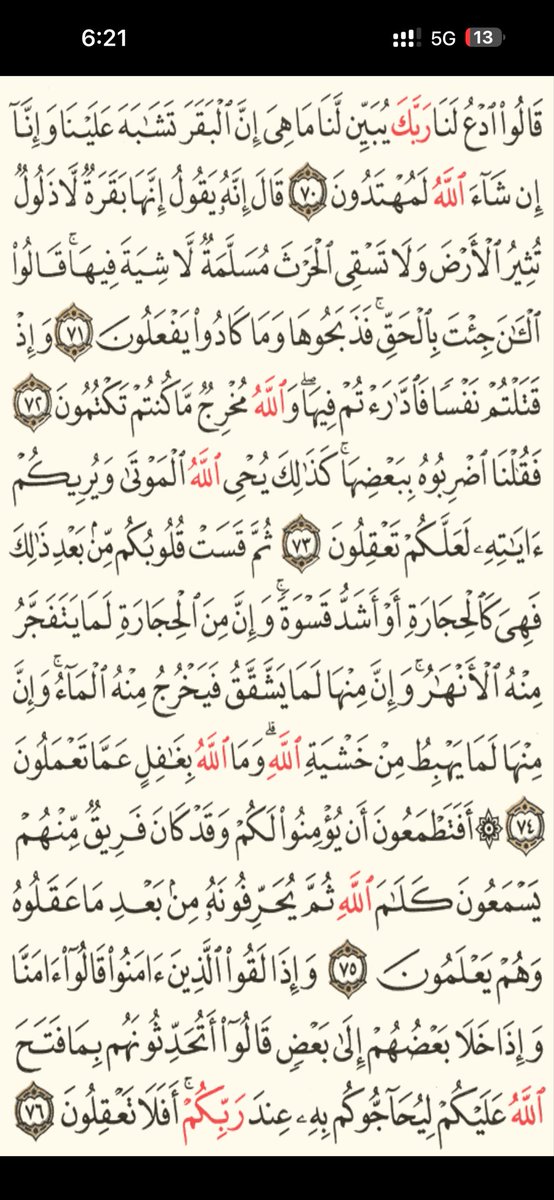 6:21 5G 13
قَالُوا۟ ٱدۡعُ لَنَا رَبَّكَ يُبَيِّن لَّنَا مَا هِيَ إِنَّ ٱلۡبَقَرَ تَشَٰبَهَ عَلَيۡنَا وَإِنَّآ
إِن شَآءَ ٱللَّهُ لَمُهۡتَدُونَ ٧٠ قَالَ إِنَّهُۥ يَقُولُ إِنَّهَا بَقَرَةٞ لَّا ذَلُولٞ
تُثِيرُ ٱلۡأَرۡضَ وَلَا تَسۡقِي ٱلۡحَرۡثَ مُسَلَّمَةٞ لَّا شِيَةَ فِيهَاۚ قَالُوا۟
ٱلۡـَٰٔنَ جِئۡتَ بِٱلۡحَقِّۚ فَذَبَحُوهَا وَمَا كَادُوا۟ يَفۡعَلُونَ ٧١ وَإِذۡ
قَتَلۡتُمۡ نَفۡسٗا فَٱدَّٰرَٰٔتُمۡ فِيهَاۖ وَٱللَّهُ مُخۡرِجٞ مَّا كُنتُمۡ تَكۡتُمُونَ ٧٢
فَقُلۡنَا ٱضۡرِبُوهُ بِبَعۡضِهَاۚ كَذَٰلِكَ يُحۡيِ ٱللَّهُ ٱلۡمَوۡتَىٰ وَيُرِيكُمۡ
ءَايَٰتِهِۦ لَعَلَّكُمۡ تَعۡقِلُونَ ٧٣ ثُمَّ قَسَتۡ قُلُوبُكُم مِّنۢ بَعۡدِ ذَٰلِكَ
فَهِيَ كَٱلۡحِجَارَةِ أَوۡ أَشَدُّ قَسۡوَةٗۚ وَإِنَّ مِنَ ٱلۡحِجَارَةِ لَمَا يَتَفَجَّرُ
مِنۡهُ ٱلۡأَنۡهَٰرُۚ وَإِنَّ مِنۡهَا لَمَا يَشَّقَّقُ فَيَخۡرُجُ مِنۡهُ ٱلۡمَآءُۚ وَإِنَّ
مِنۡهَا لَمَا يَهۡبِطُ مِنۡ خَشۡيَةِ ٱللَّهِۗ وَمَا ٱللَّهُ بِغَٰفِلٍ عَمَّا تَعۡمَلُونَ
٧٤ ۞ أَفَتَطۡمَعُونَ أَن يُؤۡمِنُوا۟ لَكُمۡ وَقَدۡ كَانَ فَرِيقٞ مِّنۡهُمۡ
يَسۡمَعُونَ كَلَٰمَ ٱللَّهِ ثُمَّ يُحَرِّفُونَهُۥ مِنۢ بَعۡدِ مَا عَقَلُوهُ
وَهُمۡ يَعۡلَمُونَ ٧٥ وَإِذَا لَقُوا۟ ٱلَّذِينَ ءَامَنُوا۟ قَالُوٓا۟ ءَامَنَّا
وَإِذَا خَلَا بَعۡضُهُمۡ إِلَىٰ بَعۡضٖ قَالُوٓا۟ أَتُحَدِّثُونَهُم بِمَا فَتَحَ
ٱللَّهُ عَلَيۡكُمۡ لِيُحَآجُّوكُم بِهِۦ عِندَ رَبِّكُمۡۚ أَفَلَا تَعۡقِلُونَ ٧٦